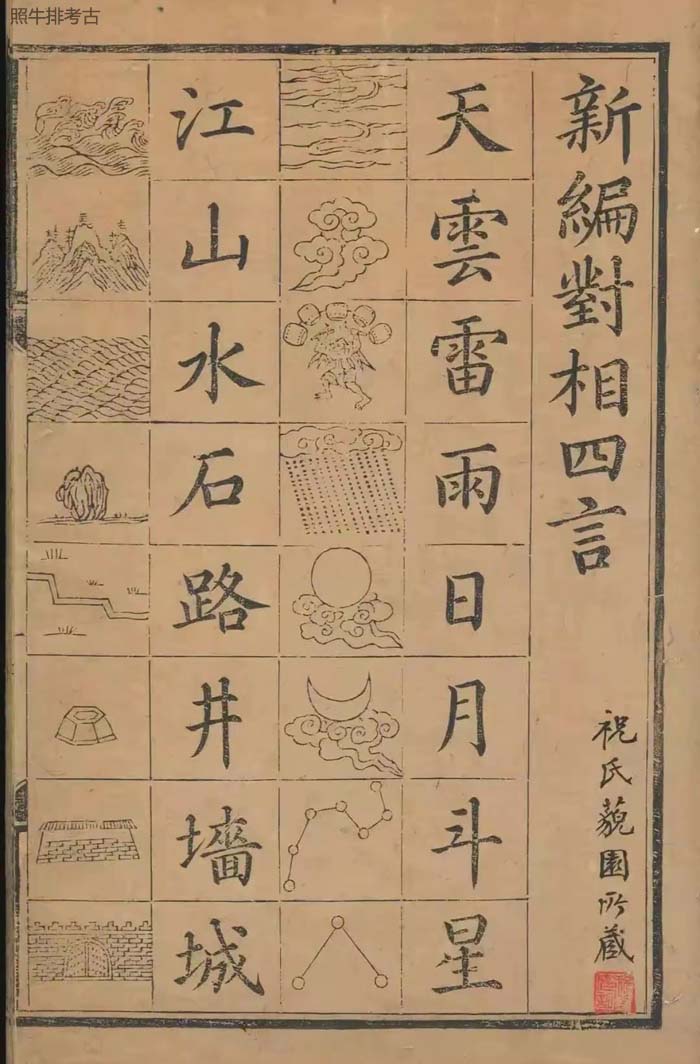 照牛排考古
新編對相四言
祝氏藐園所藏
天雲雷雨日月斗星
江山水石路井墻城